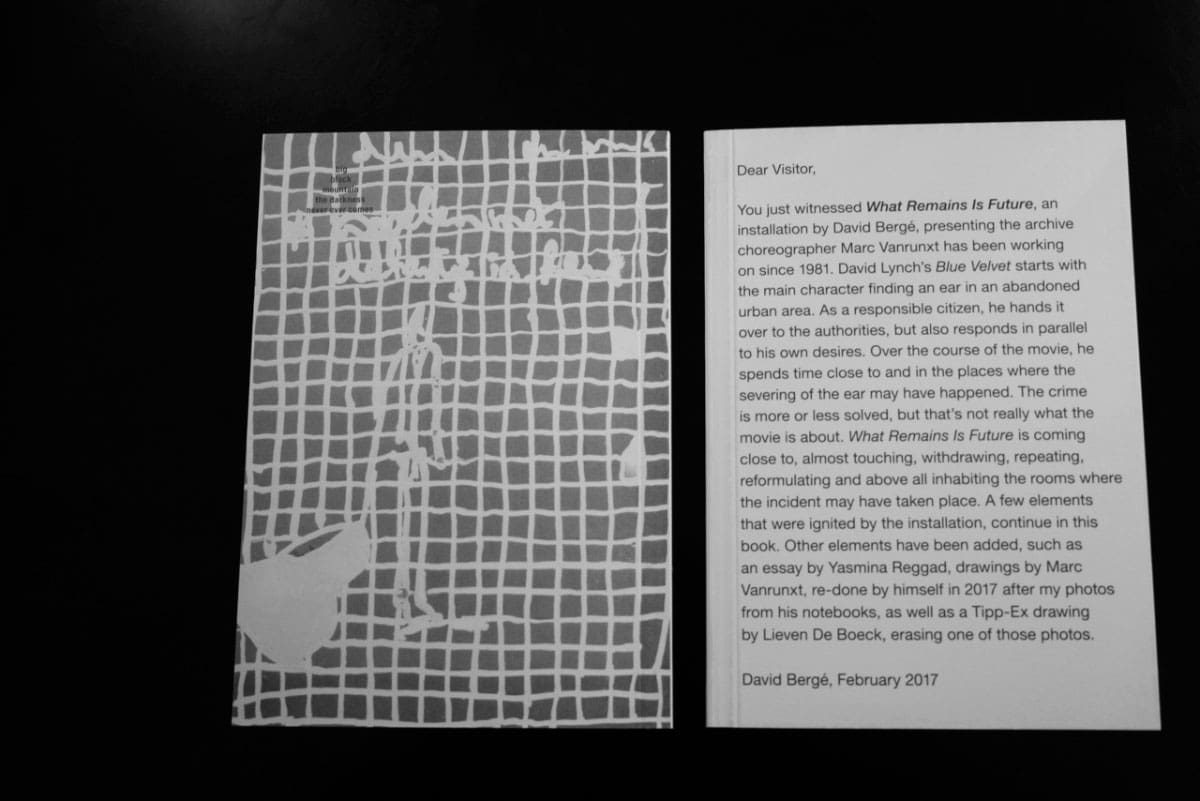 big
black
mountain
the darkness
never ever comes
Dear Visitor,
You just witnessed What Remains Is Future, an
installation by David Bergé, presenting the archive
choreographer Marc Vanrunxt has been working
on since 1981. David Lynch's Blue Velvet starts with
the main character finding an ear in an abandoned
urban area. As a responsible citizen, he hands it
over to the authorities, but also responds in parallel
to his own desires. Over the course of the movie, he
spends time close to and in the places where the
severing of the ear may have happened. The crime
is more or less solved, but that's not really what the
movie is about. What Remains Is Future is coming
close to, almost touching, withdrawing, repeating,
reformulating and above all inhabiting the rooms where
the incident may have taken place. A few elements
that were ignited by the installation, continue in this
book. Other elements have been added, such as
an essay by Yasmina Reggad, drawings by Marc
Vanrunxt, re-done by himself in 2017 after my photos
from his notebooks, as well as a Tipp-Ex drawing
by Lieven De Boeck, erasing one of those photos.
David Bergé, February 2017